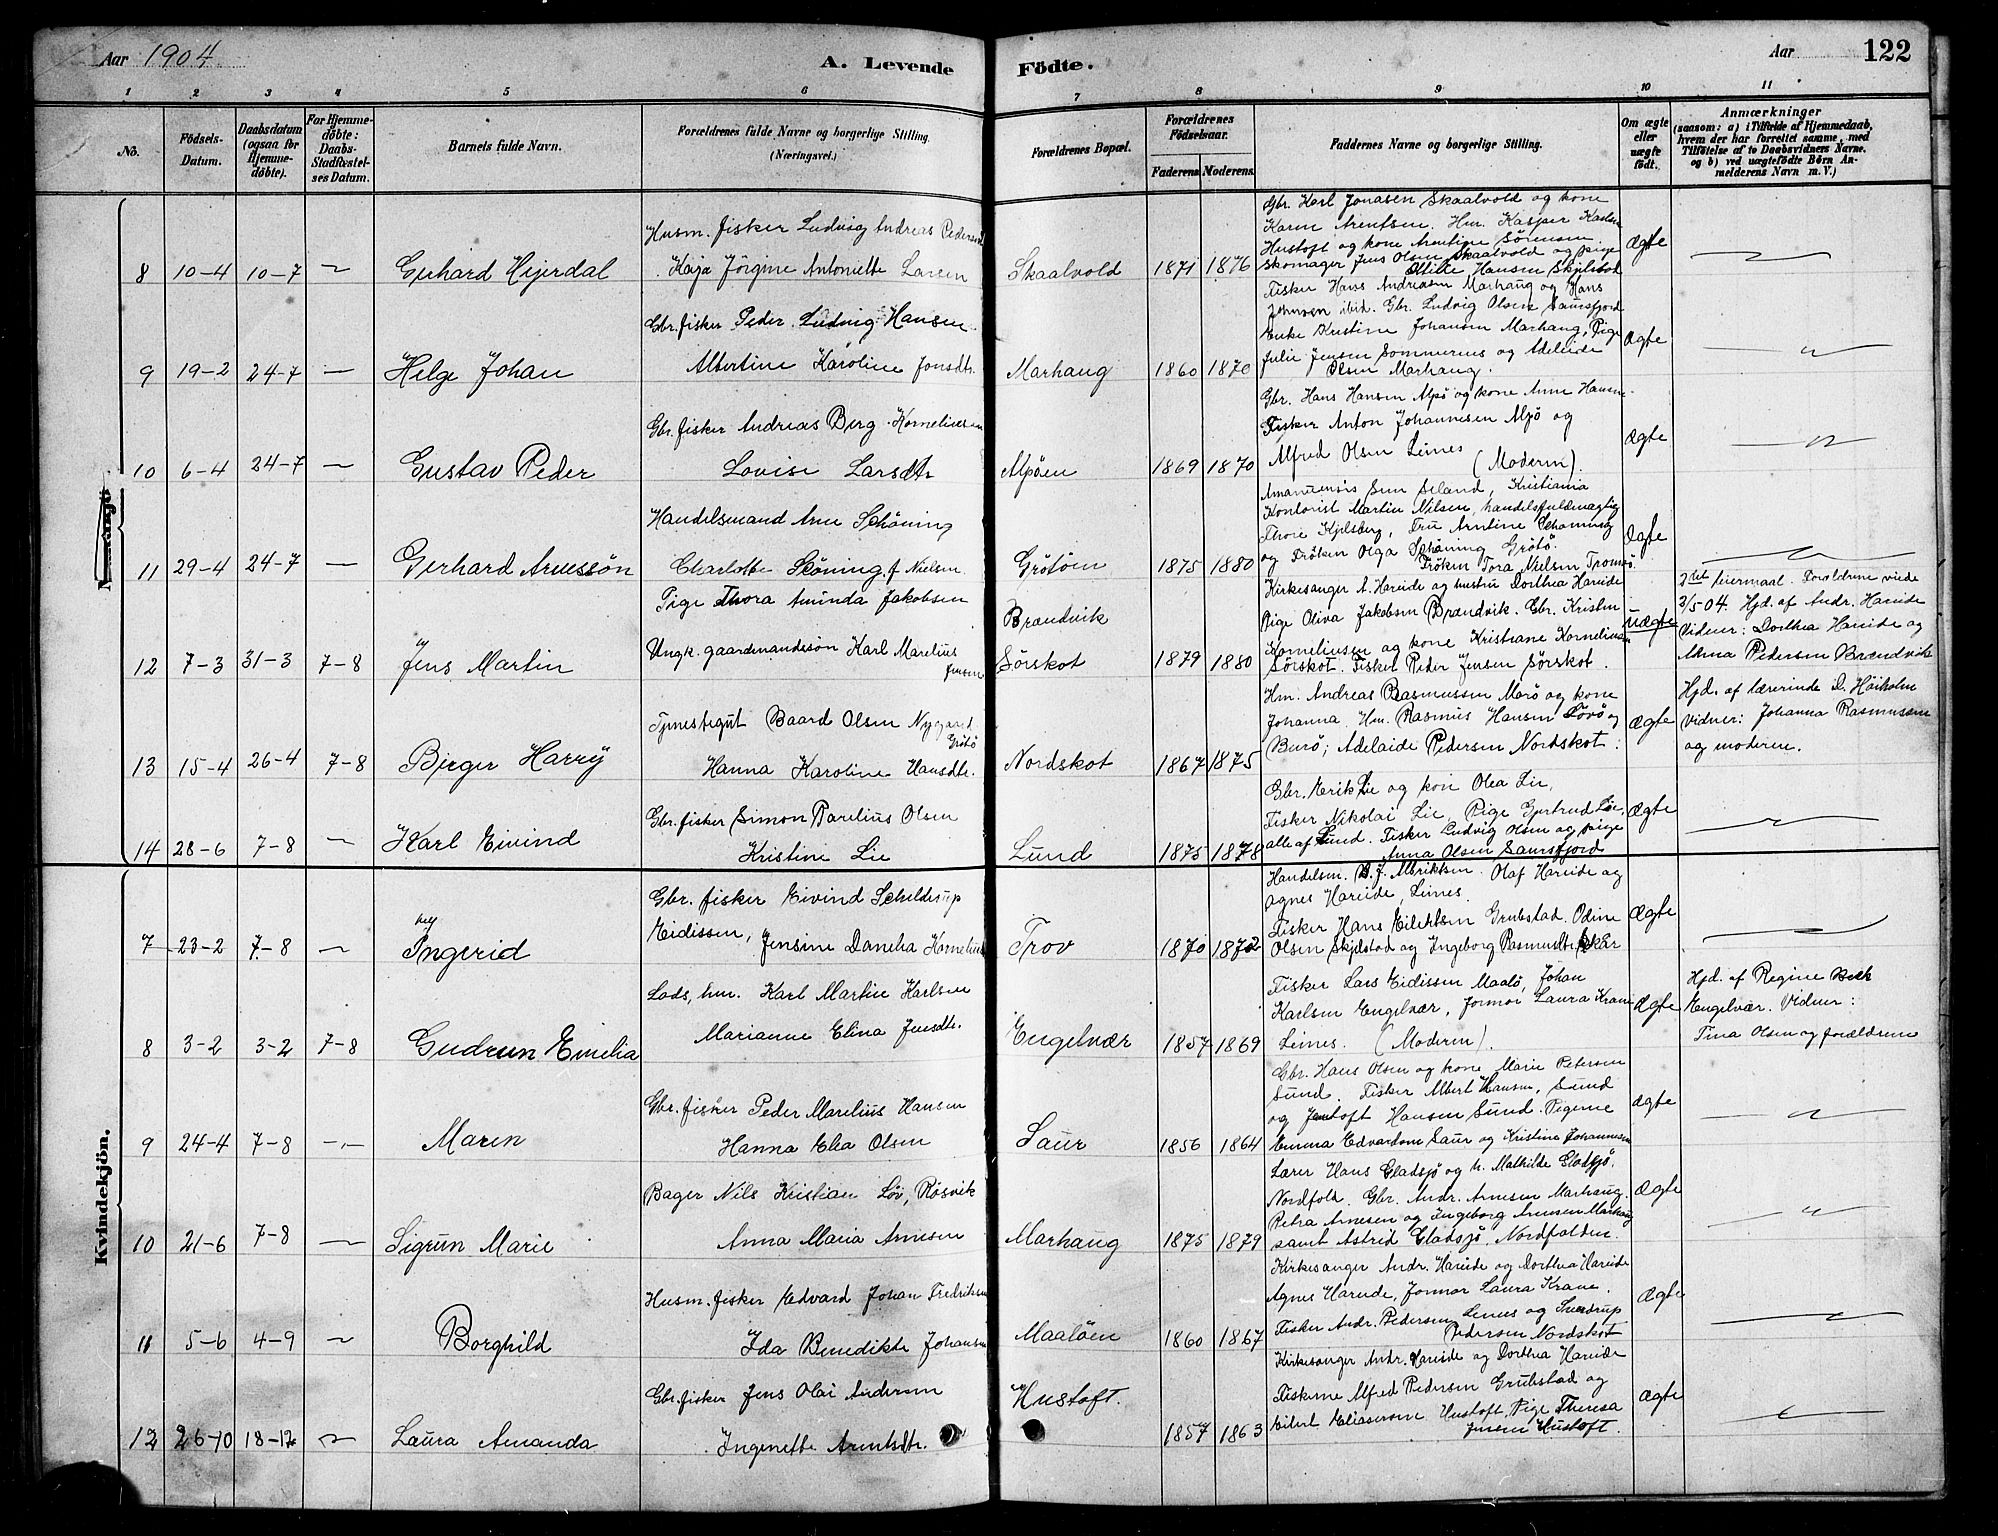 Aar 1904.
A. Levende Födte.
Aar 122
1 2 3 4 5 6 7 8 9 10 11
No.
Födsels-Datum.
Daabsdatum (ogsaa for Hjemmedöbte).
For Hjemmedöbte: Daabs-Stadfæstelses Datum.
Barnets fulde Navn.
Forældrenes fulde Navne og borgerlige Stilling. (Næringsvei.)
Forældrenes Bopæl.
Forældrenes Födselsaar.
Faderens Moderens.
Faddernes Navne og borgerlige Stilling.
Om ægte eller uægte födt.
Anmærkninger
(saasom: a) i Tilfælde af Hjemmedaab, hvem der har forrettet samme, med Tilföielse af to Daabsvidners Navne, og b) ved uægtefödte Börn Anmelderens Navn m. V.)
8 10-4 10-7 Gerhard Hijerdal
Husm. fisker Ludvig Andreas Pedersen
Kaja Jörgine Antoniette Larsen
Skaalvold 1871 1876
Gbr. Karl Jonasen Skaalvold og kone
Karen Arentsen. Hm. Kasper Karlsen
Hustoft og kone Arntine Sörensen
Skomager Jens Olsen Skaalvold og pige
Otilie Hansen Skjelstad
Ægte
9 19-2 24-7 — Helge Johan
Gbr. fisker Peder Ludvig Hansen
Albertine Karoline Jonsdtr.
Marhaug 1860 1870
Fisker Hans Andreasen Marhaug og Hans
Johnsen ibid. Gbr. Ludvig Olsen Saursfjord
Enke Kristine Johansen Marhaug, Pige
Julie Jensen Sommernes og Adelaide
Olsen Marhaug.
Ægte
10 6-4 24-7 — Gustav Peder
Gbr. fisker Andreas Berg Korneliussen
Lovise Larsdtr
Alpöen 1869 1870
Gbr. Hans Hansen Alpö og kone Anne Hansen
Fisker Anton Johannesen Alpö og
Alfred Olsen Leines (Moderen).
Ægte
11 29-4 24-7 — Gerhard Arnessön
Handelsmand Arne Schöning
Charlotte Sköning f. Nielsen
Grötöen 1875 1880
Amanuensis Seland, Kristiania
Kontorist Martin Nilsen, handelsfuldmægtig
Thore Kjelsberg, Fru Arntine Schöning
og Fröken Olga Schöning Grötö.
Fröken Tora Nielsen Tromsö.
Ægte
12 7-3 31-3 7-8 Jens Martin
Pige Thora Amunda Jakobsen
Ungk. gaardmandssön Karl Marelius
Jensen
Brændvik
Sörskot 1879 1880
Kirkesanger A. Hareide og hustru Dorthea Hareide
Pige Oliva Jakobsen Brændvik. Gbr. Kristen
Korneliusen og kone Kristiane Korneliusen
Sörskot. Fisker Peder Jensen Sörskot.
uægte
2det leiermaal. Forældrene viede
3/5-04. Hjd. af Andr. Hareide
Vidner: Dorthea Hareide og
Alma Pedersen Brændvik
13 15-4 26-4 7-8 Birger Harry
Tjenestegut Baard Olsen Nygaard
Grötö
Hanna Karoline Hansdtr.
Nordskot 1867 1875
Hm. Andreas Rasmussen Marö og kone
Johanna. Hm. Rasmus Hansen
Burö; Adelaide Pedersen Nordskot.
Ægte
Hjd. af lærerinde D. Høiholm
Vidner: Johanna Rasmussen
og moderen.
14 28-6 7-8 — Karl Eivind
Gbr. fisker Simon Parelius Olsen
Kristine Lie
Lund 1875 1878
Gbr. Erik Lie og kone Olea Lie,
Fisker Nikolai Lie Pige Gjertrud Lie
alle af Lund. Fisker Ludvig Olsen og pige
Anna Olsen Saursfjord
Ægte
Kvindekjön.
7 23-2 7-8 Ingerid
Gbr. fisker Eivind Schelderup
Eidissen, Jensine Danelia Kornelius
Trov 1870 1872
Handelsm. Albriktsen. Olaf Hareide og
Agnes Hareide, Leines.
Fisker Hans Eilertsen Grubstad. Odine
Olsen Skjelstad og Ingeborg Rasmusdtr Skar
Ægte
8 3-2 3-2 7-8 Gudrun Emelia
Lods, hm. Karl Martin Karlsen
Marianne Elina Jensdtr.
Engelvær 1857 1869
Fisker Lars Eidissen Maalö, Johan
Karlsen Engelvær, Jormor Laura Krane
Leines. (Moderen).
Ægte
Hjd. af Regine Bech
Engelvær. Vidner:
Tina Olsen og forældrene
9 24-4 7-8 Maren
Gbr. fisker Peder Marelius Hansen
Hanna Elia Olsen
Saur 1856 1864
Gbr. Hans Olsen og kone Marie Petersen
Sund. Fisker Albert Hansen, Sund
og Jentoft Hansen Sund. Pigerne
Emma Edvardsen Saur og Kristine Johannesen
Ægte
10 21-6 7-8 — Sigrun Marie
Bager Nils Kristian Löv, Rösvik
Anna Maria Arnesen
Marhaug 1875 1879
Lærer Hans Gladsjö og h. Mathilde Gladsjö,
Nordfold. Gbr. Andr. Arnesen Marhaug.
Petra Arnesen og Ingeborg Arnesen Marhaug
samt Astrid Gladsjö, Nordfolden.
Ægte
11 5-6 4-9 Borghild
Husm. fisker Edvard Johan Fredriksen
Ida Benedikte Johansen
Maalöen 1860 1867
Kirkesanger Andr. Hareide og Dorthea Hareide
Agnes Hareide, Jormor Laura Krane.
Fisker Andr. Pedersen Leines og Sverdrup
Pedersen Nordskot
Ægte
12 26-10 18-12 Laura Amanda
Gbr. fisker Jens Olai Andersen
Ingenette Arntsdtr.
Hustoft. 1857 1863
Kirkesanger Andr. Hareide og Dorthea Hareide
Fiskerne Alfred Pedersen Grubstad og
Eilert Eliassen Hustoft, Pige Theresa
Jensen Hustoft.
Ægte